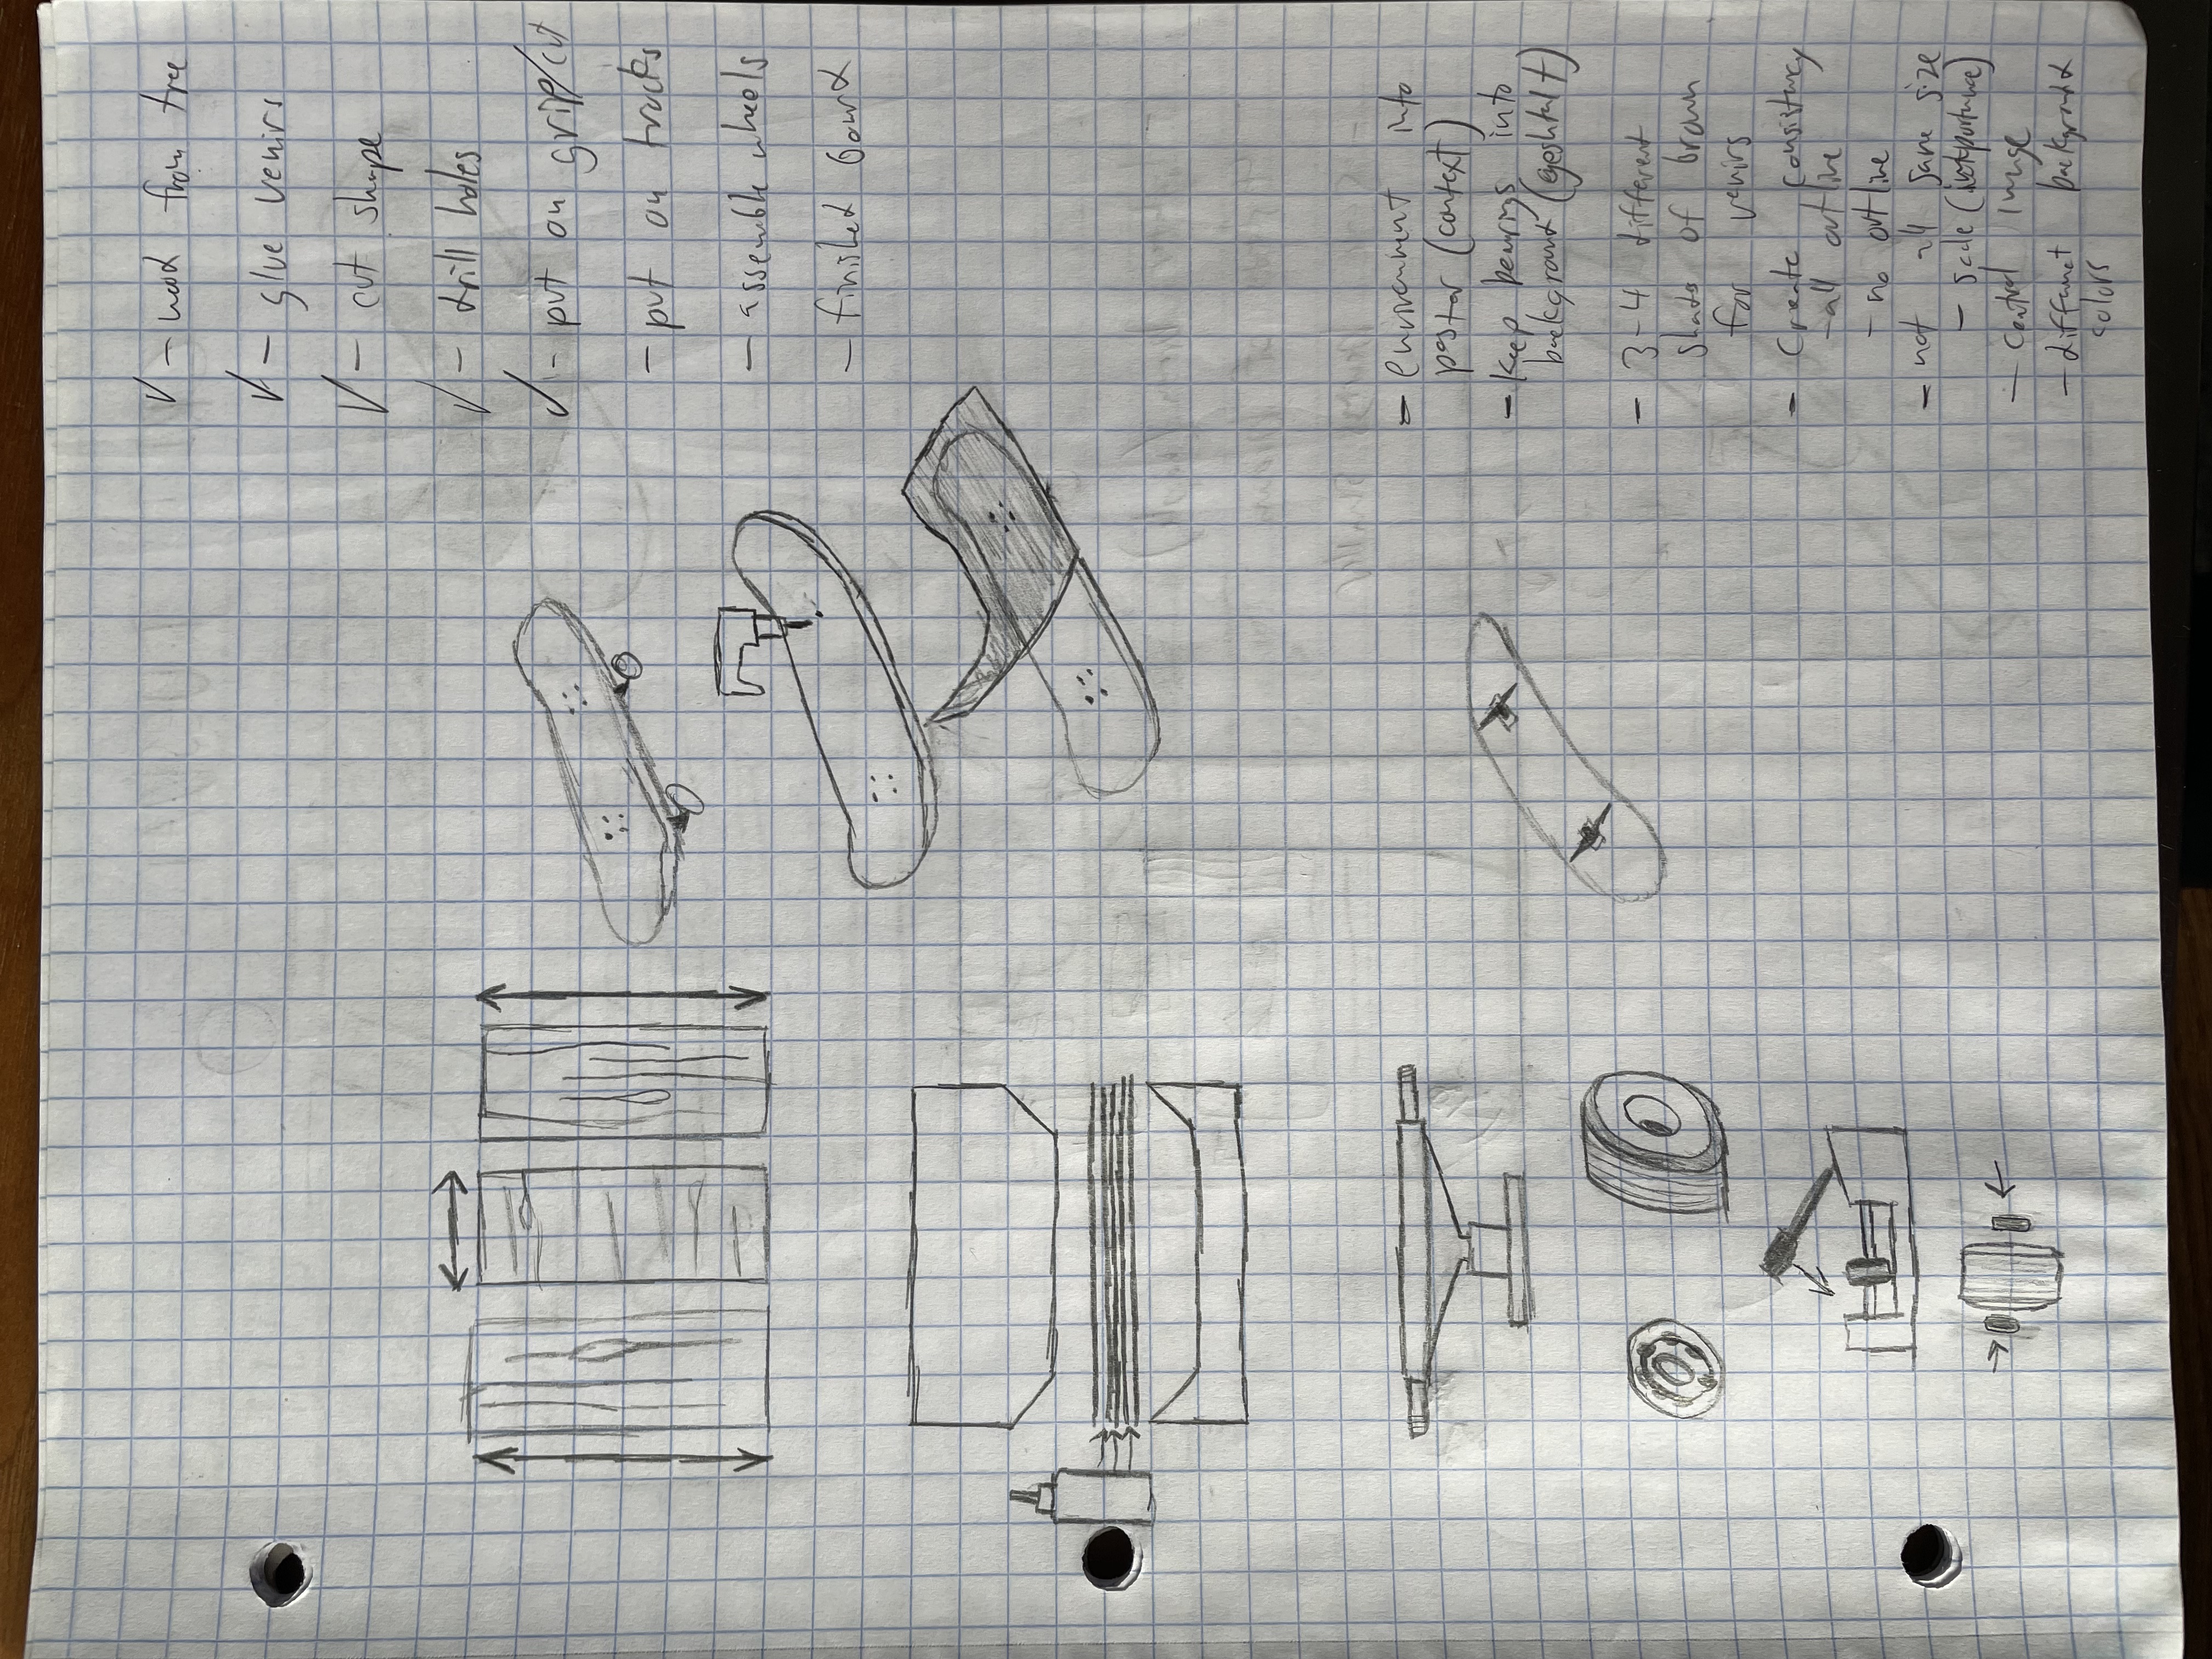 ✓ - wood from tree
✓ - glue venirs
✓ - cut shape
✓ - drill holes
✓ - put on grip/cut
- put on trucks
- assemble wheels
- finished board
- environment into
poster (context)
- keep bearings into
background (geshtalt)
- 3-4 different
shades of brown
for venirs
- Create consistency
- all outline
- no outline
- not all same size
- scale (importance)
- central image
- different background
colors